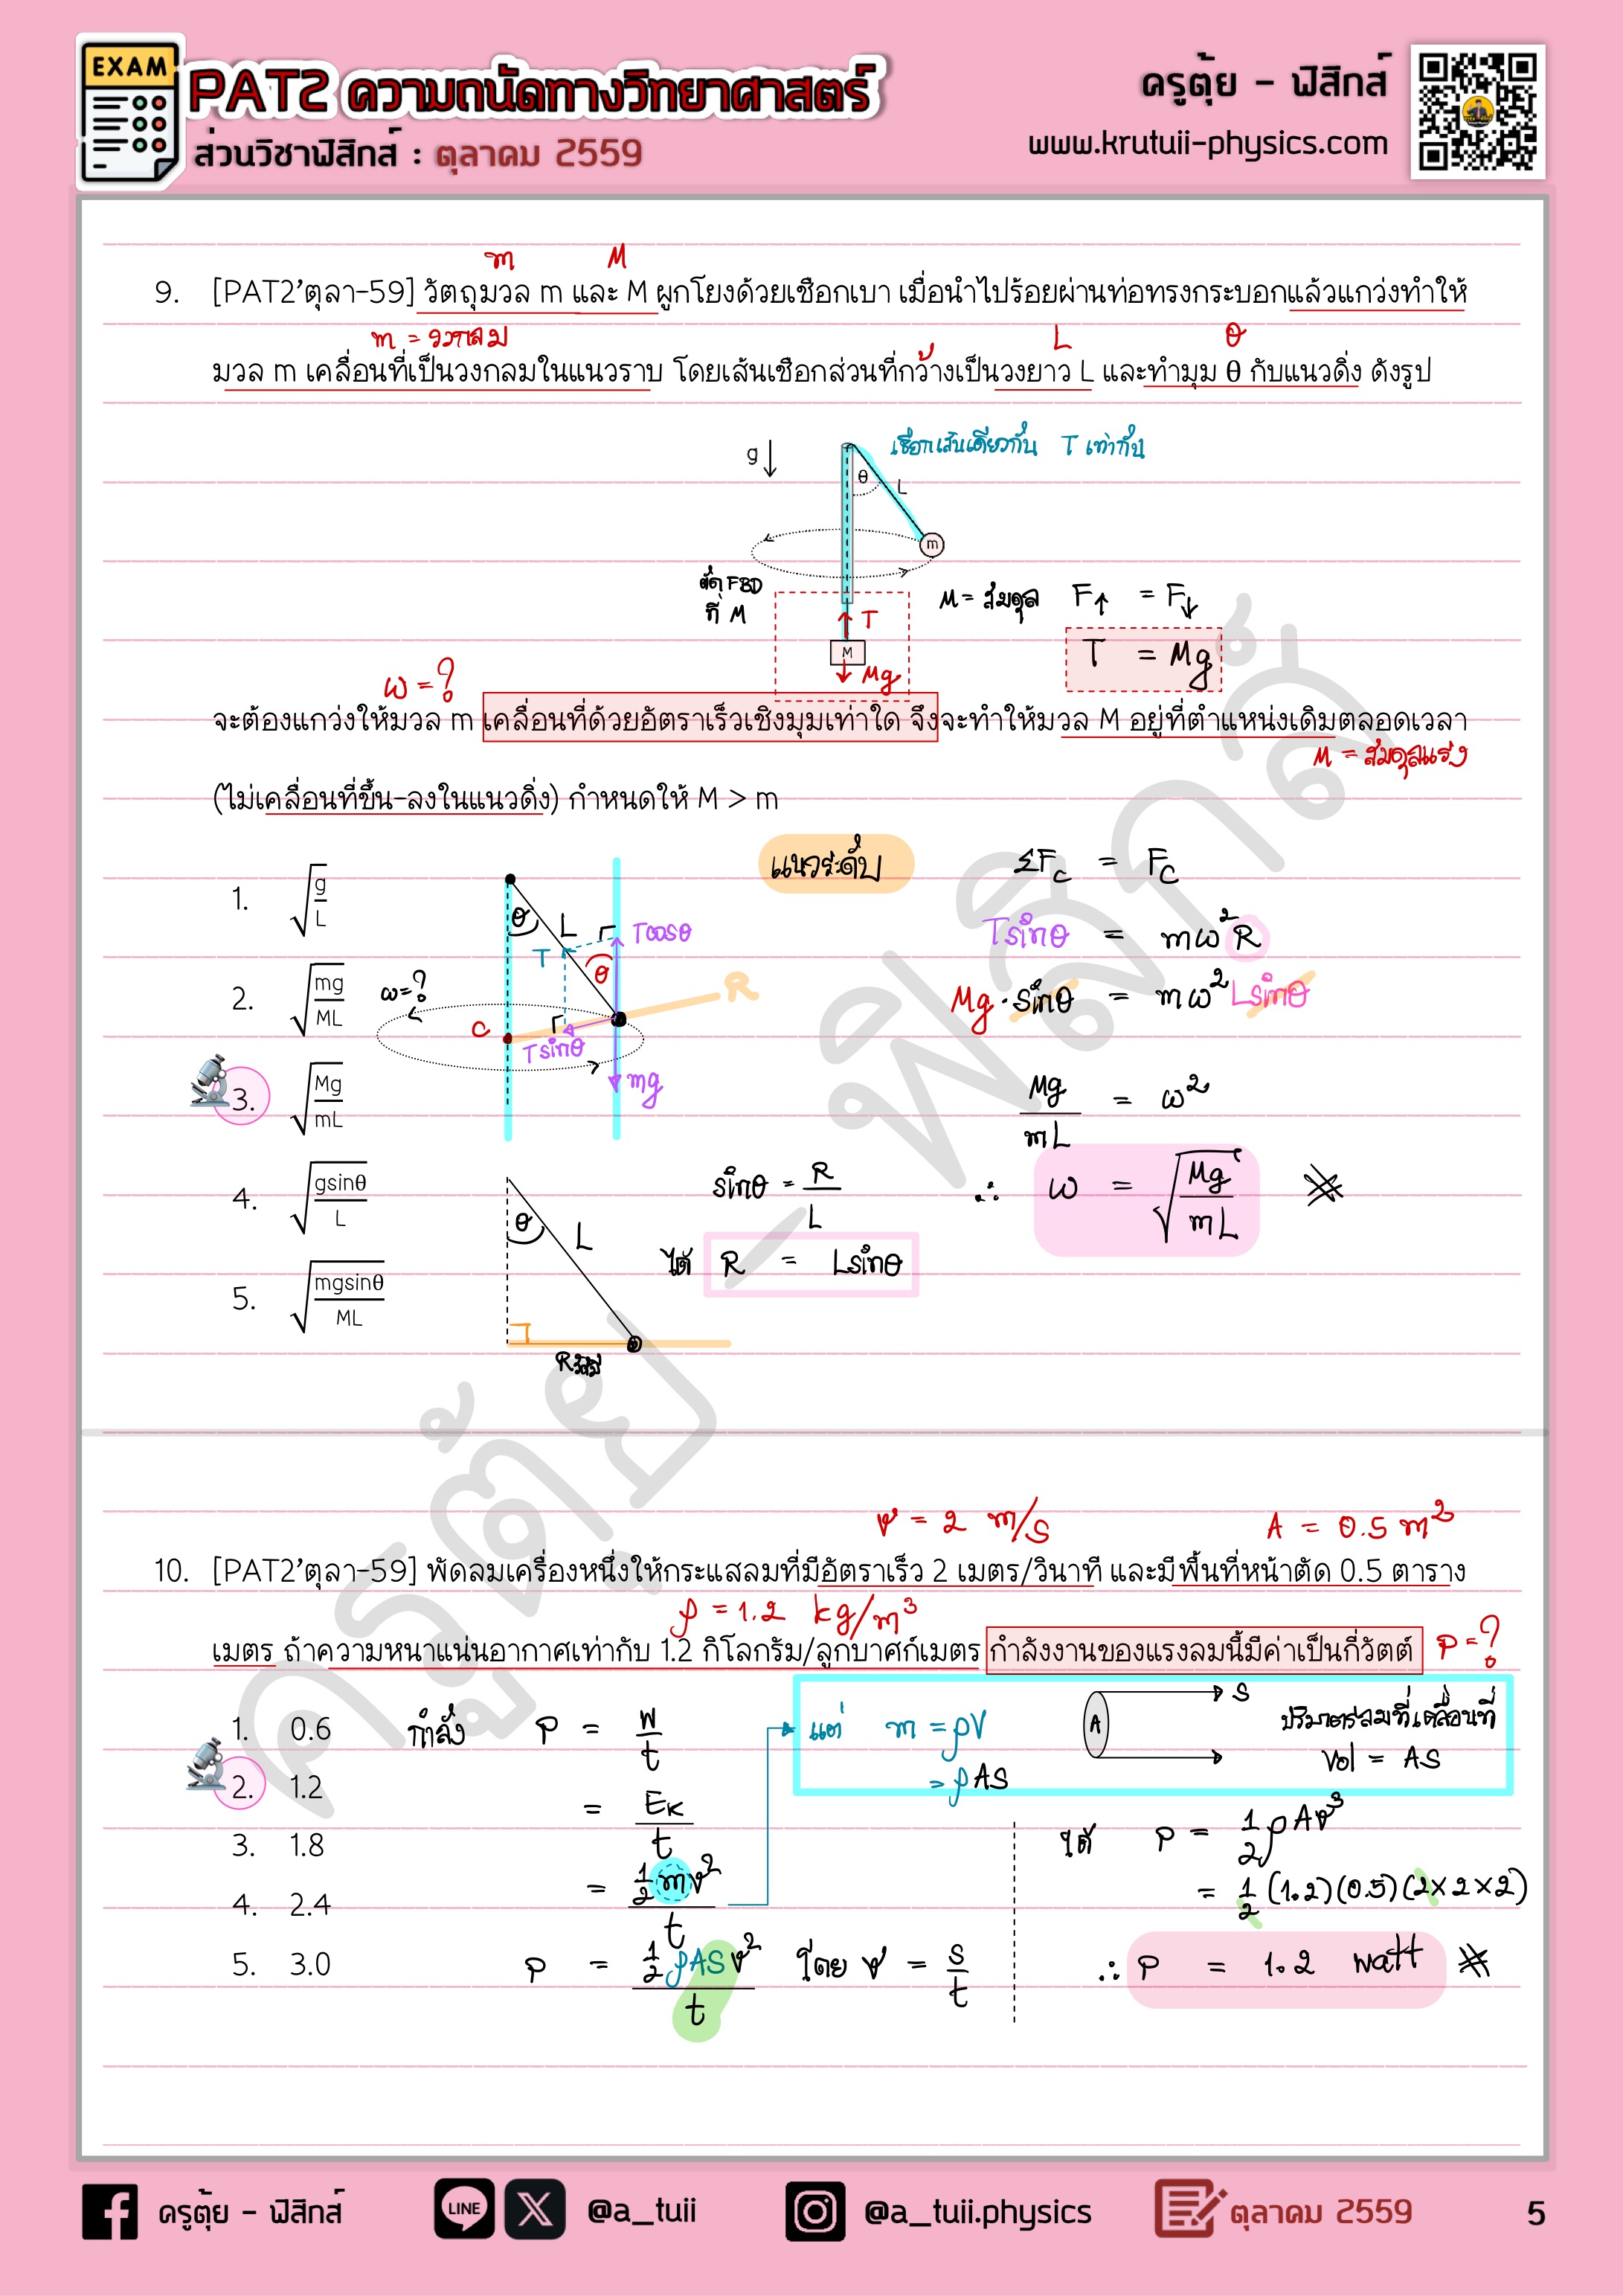 EXAM
PAT2 ความถนัดทางวิทยาศาสตร์
ส่วนวิชาฟิสิกส์ : ตุลาคม 2559
ครูตุ้ย - ฟิสิกส์
www.krutuii-physics.com
m M
9. [PAT2'ตุลา-59] วัตถุมวล m และ M ผูกโยงด้วยเชือกเบา เมื่อนำไปร้อยผ่านท่อทรงกระบอกแล้วแกว่งทำให้
m = วงกลม L θ
มวล m เคลื่อนที่เป็นวงกลมในแนวราบ โดยเส้นเชือกส่วนที่กว้างเป็นวงยาว L และทำมุม θ กับแนวดิ่ง ดังรูป
g
เชือกเส้นเดียวกัน T เท่ากัน
θ L
m
ตัด FBD
ที่ M
T
M
Mg
M = สมดุล F↑ = F↓
T = Mg
ω = ?
จะต้องแกว่งให้มวล m เคลื่อนที่ด้วยอัตราเร็วเชิงมุมเท่าใด จึงจะทำให้มวล M อยู่ที่ตำแหน่งเดิมตลอดเวลา
M = สมดุลแรง
(ไม่เคลื่อนที่ขึ้น-ลงในแนวดิ่ง) กำหนดให้ M > m
1. √(g/L)
2. √(mg/ML)
3. √(Mg/mL)
4. √(gsinθ/L)
5. √(mgsinθ/ML)
θ L Tcosθ
T θ
ω = ? R
C
Tsinθ
mg
θ L
R รัศมี
sinθ = R/L
ได้ R = Lsinθ
แนวระดับ ΣFc = Fc
Tsinθ = mω²R
Mg · sinθ = mω²Lsinθ
Mg/mL = ω²
∴ ω = √(Mg/mL)
v = 2 m/s A = 0.5 m²
10. [PAT2'ตุลา-59] พัดลมเครื่องหนึ่งให้กระแสลมที่มีอัตราเร็ว 2 เมตร/วินาที และมีพื้นที่หน้าตัด 0.5 ตาราง
ρ = 1.2 kg/m³
เมตร ถ้าความหนาแน่นอากาศเท่ากับ 1.2 กิโลกรัม/ลูกบาศก์เมตร กำลังงานของแรงลมนี้มีค่าเป็นกี่วัตต์ P = ?
1. 0.6
2. 1.2
3. 1.8
4. 2.4
5. 3.0
กำลัง P = W/t
= Ek/t
= ½mv²/t
P = ½ρASv²/t โดย v = s/t
แต่ m = ρV
= ρAS
A
S
ปริมาตรลมที่เคลื่อนที่
Vol = AS
ได้ P = ½ρAv³
= ½(1.2)(0.5)(2×2×2)
∴ P = 1.2 watt
ครูตุ้ย - ฟิสิกส์
ครูตุ้ย - ฟิสิกส์
LINE
@a_tuii
@a_tuii.physics
ตุลาคม 2559
5